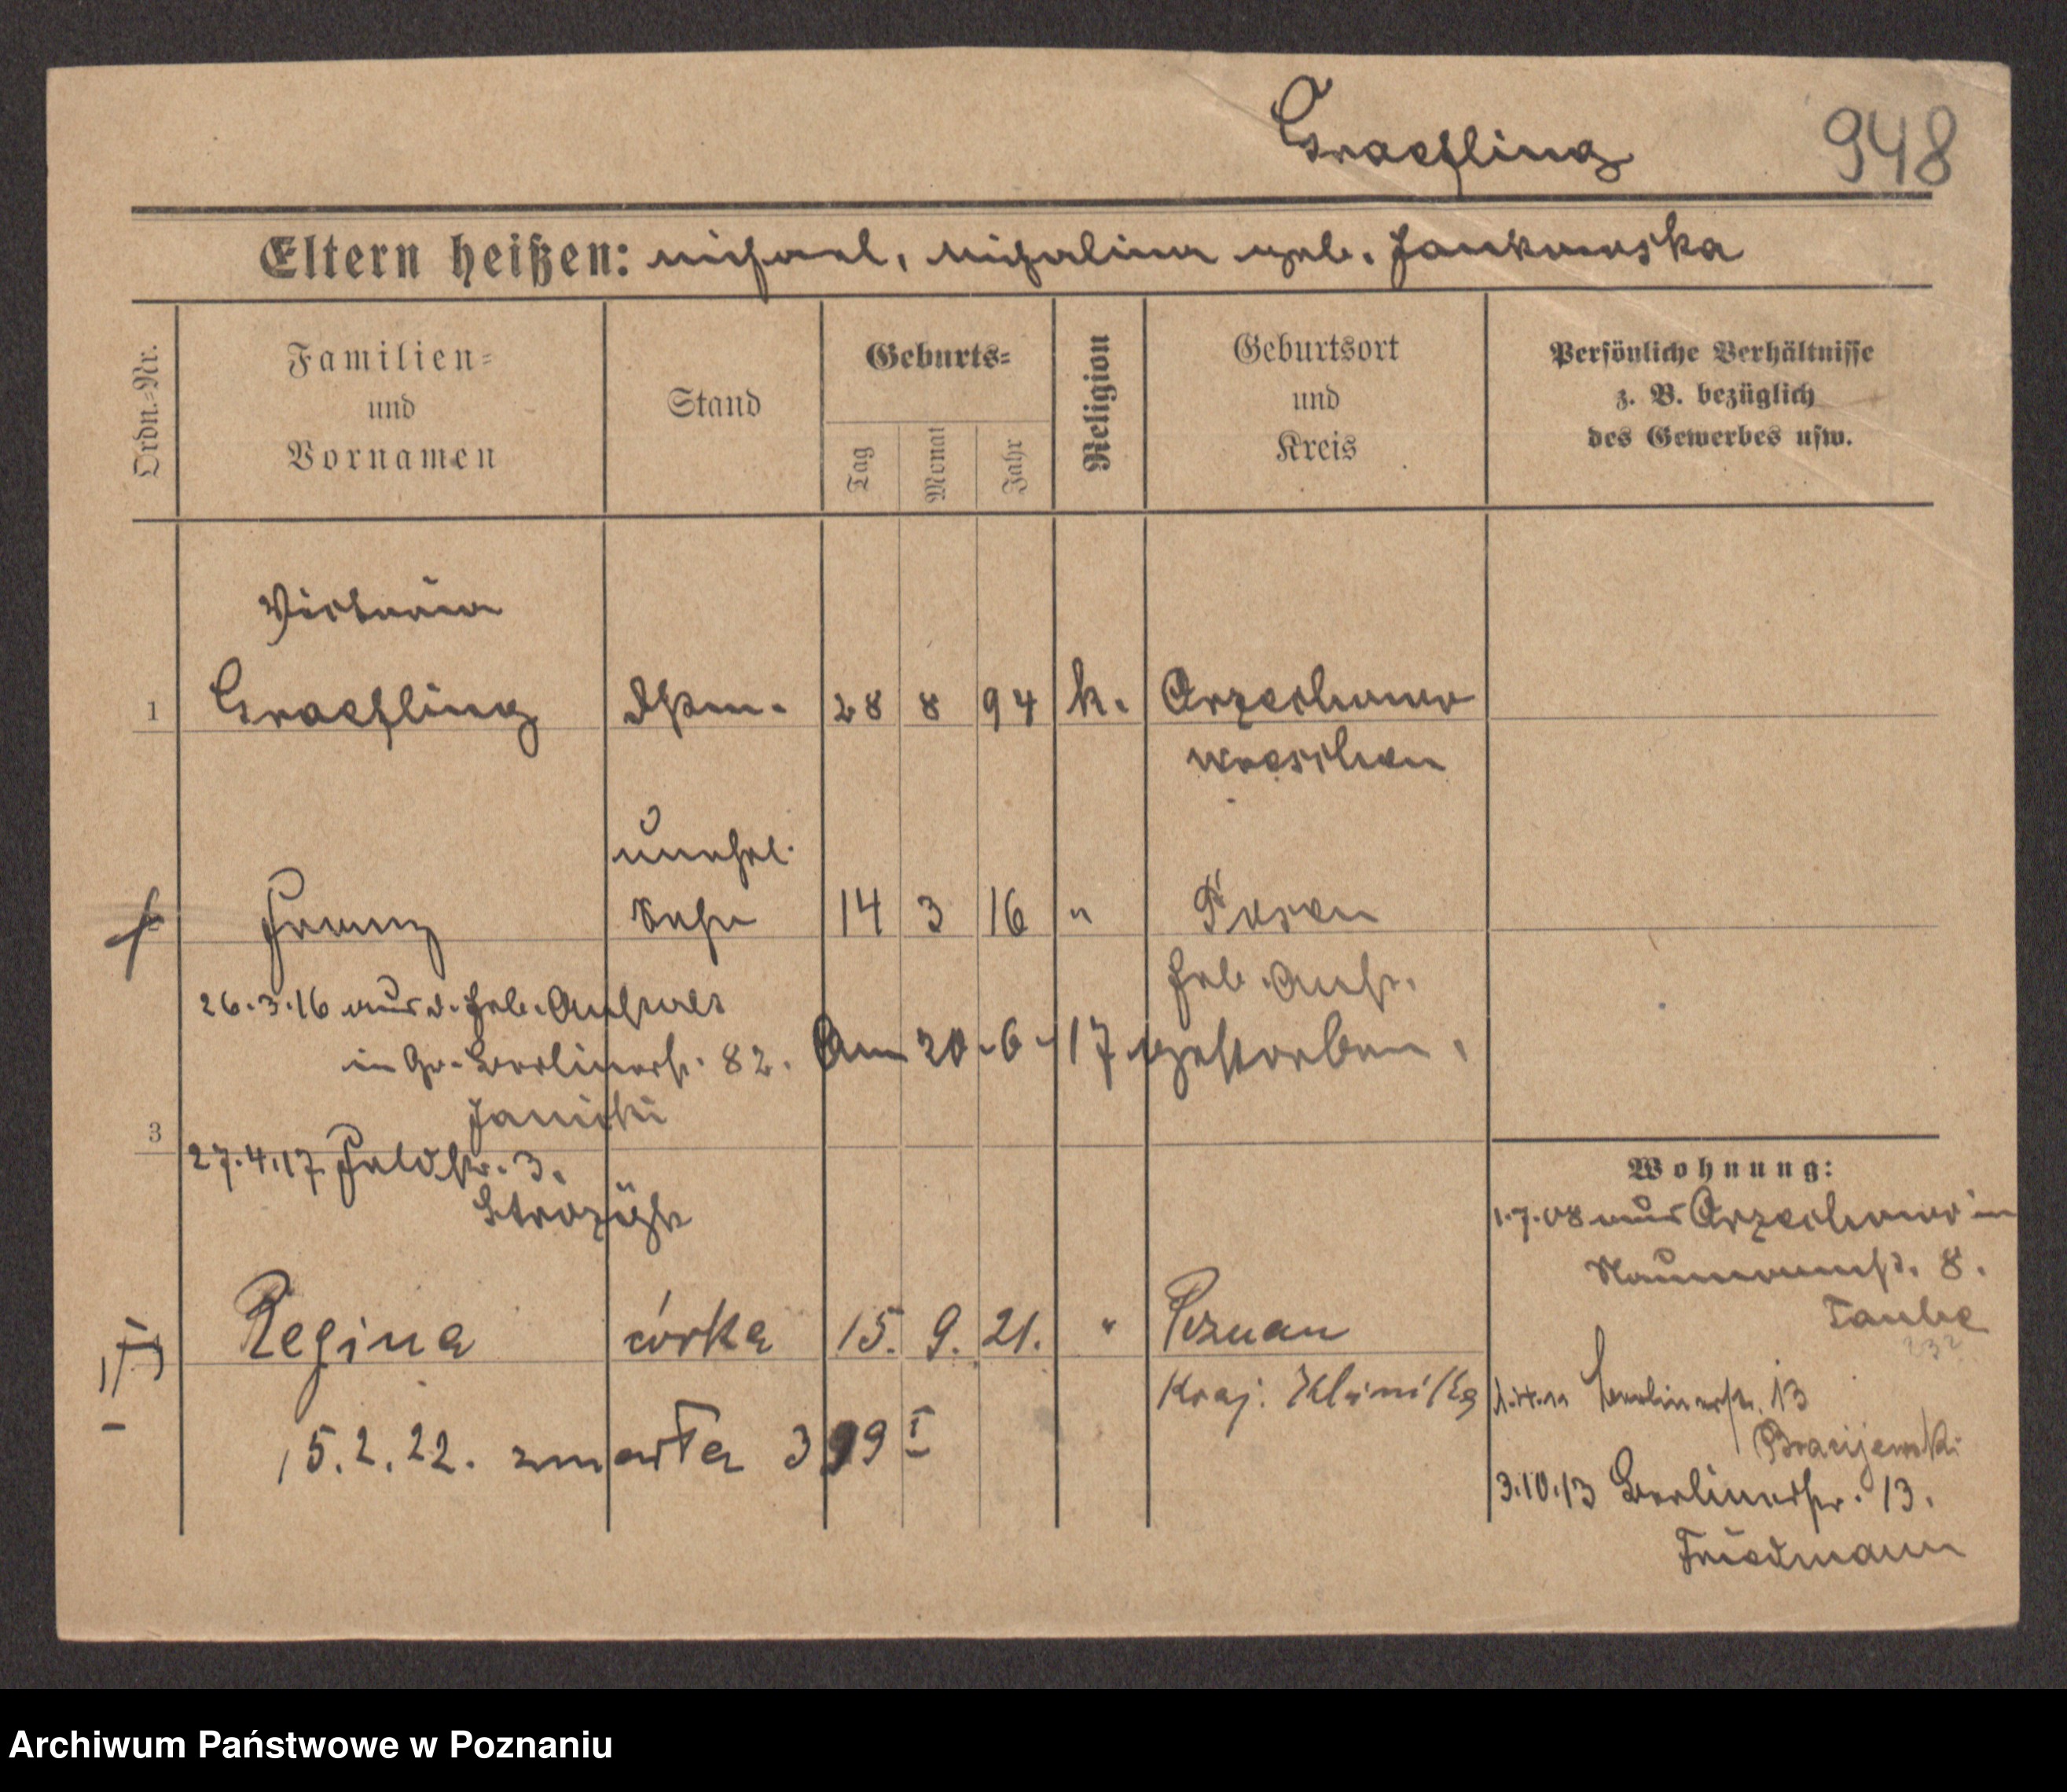 Graefling 948
Eltern heißen: Michael, Michalina geb. Jankowska
Ordn.-Nr. Familien- und Vornamen Stand Geburts- Tag Monat Jahr Religion Geburtsort und Kreis Persönliche Verhältnisse z. B. bezüglich des Gewerbes usw.
Victoria
1 Graefling 28 8 94 k. Orzechowo
Wreschen
unehel.
Franz Sohn 14 3 16 " Posen
26.3.16 aus d. Geb. Anst.
in Gr. Berlinerstr. 82. Am 20.6.17 gestorben.
Janicki
3
27.4.17. Feldstr. 3.
Wohnung:
1.7.08 aus Orzechowo in
Naumannstr. 8.
Taube
Regina córka 15. 9. 21. " Poznan
Kraj. Klinika
Berlinerstr. 13
15.2.22. zmarła 399 I
3.10.13 Berlinerstr. 13.
Friedmann
Archiwum Państwowe w Poznaniu